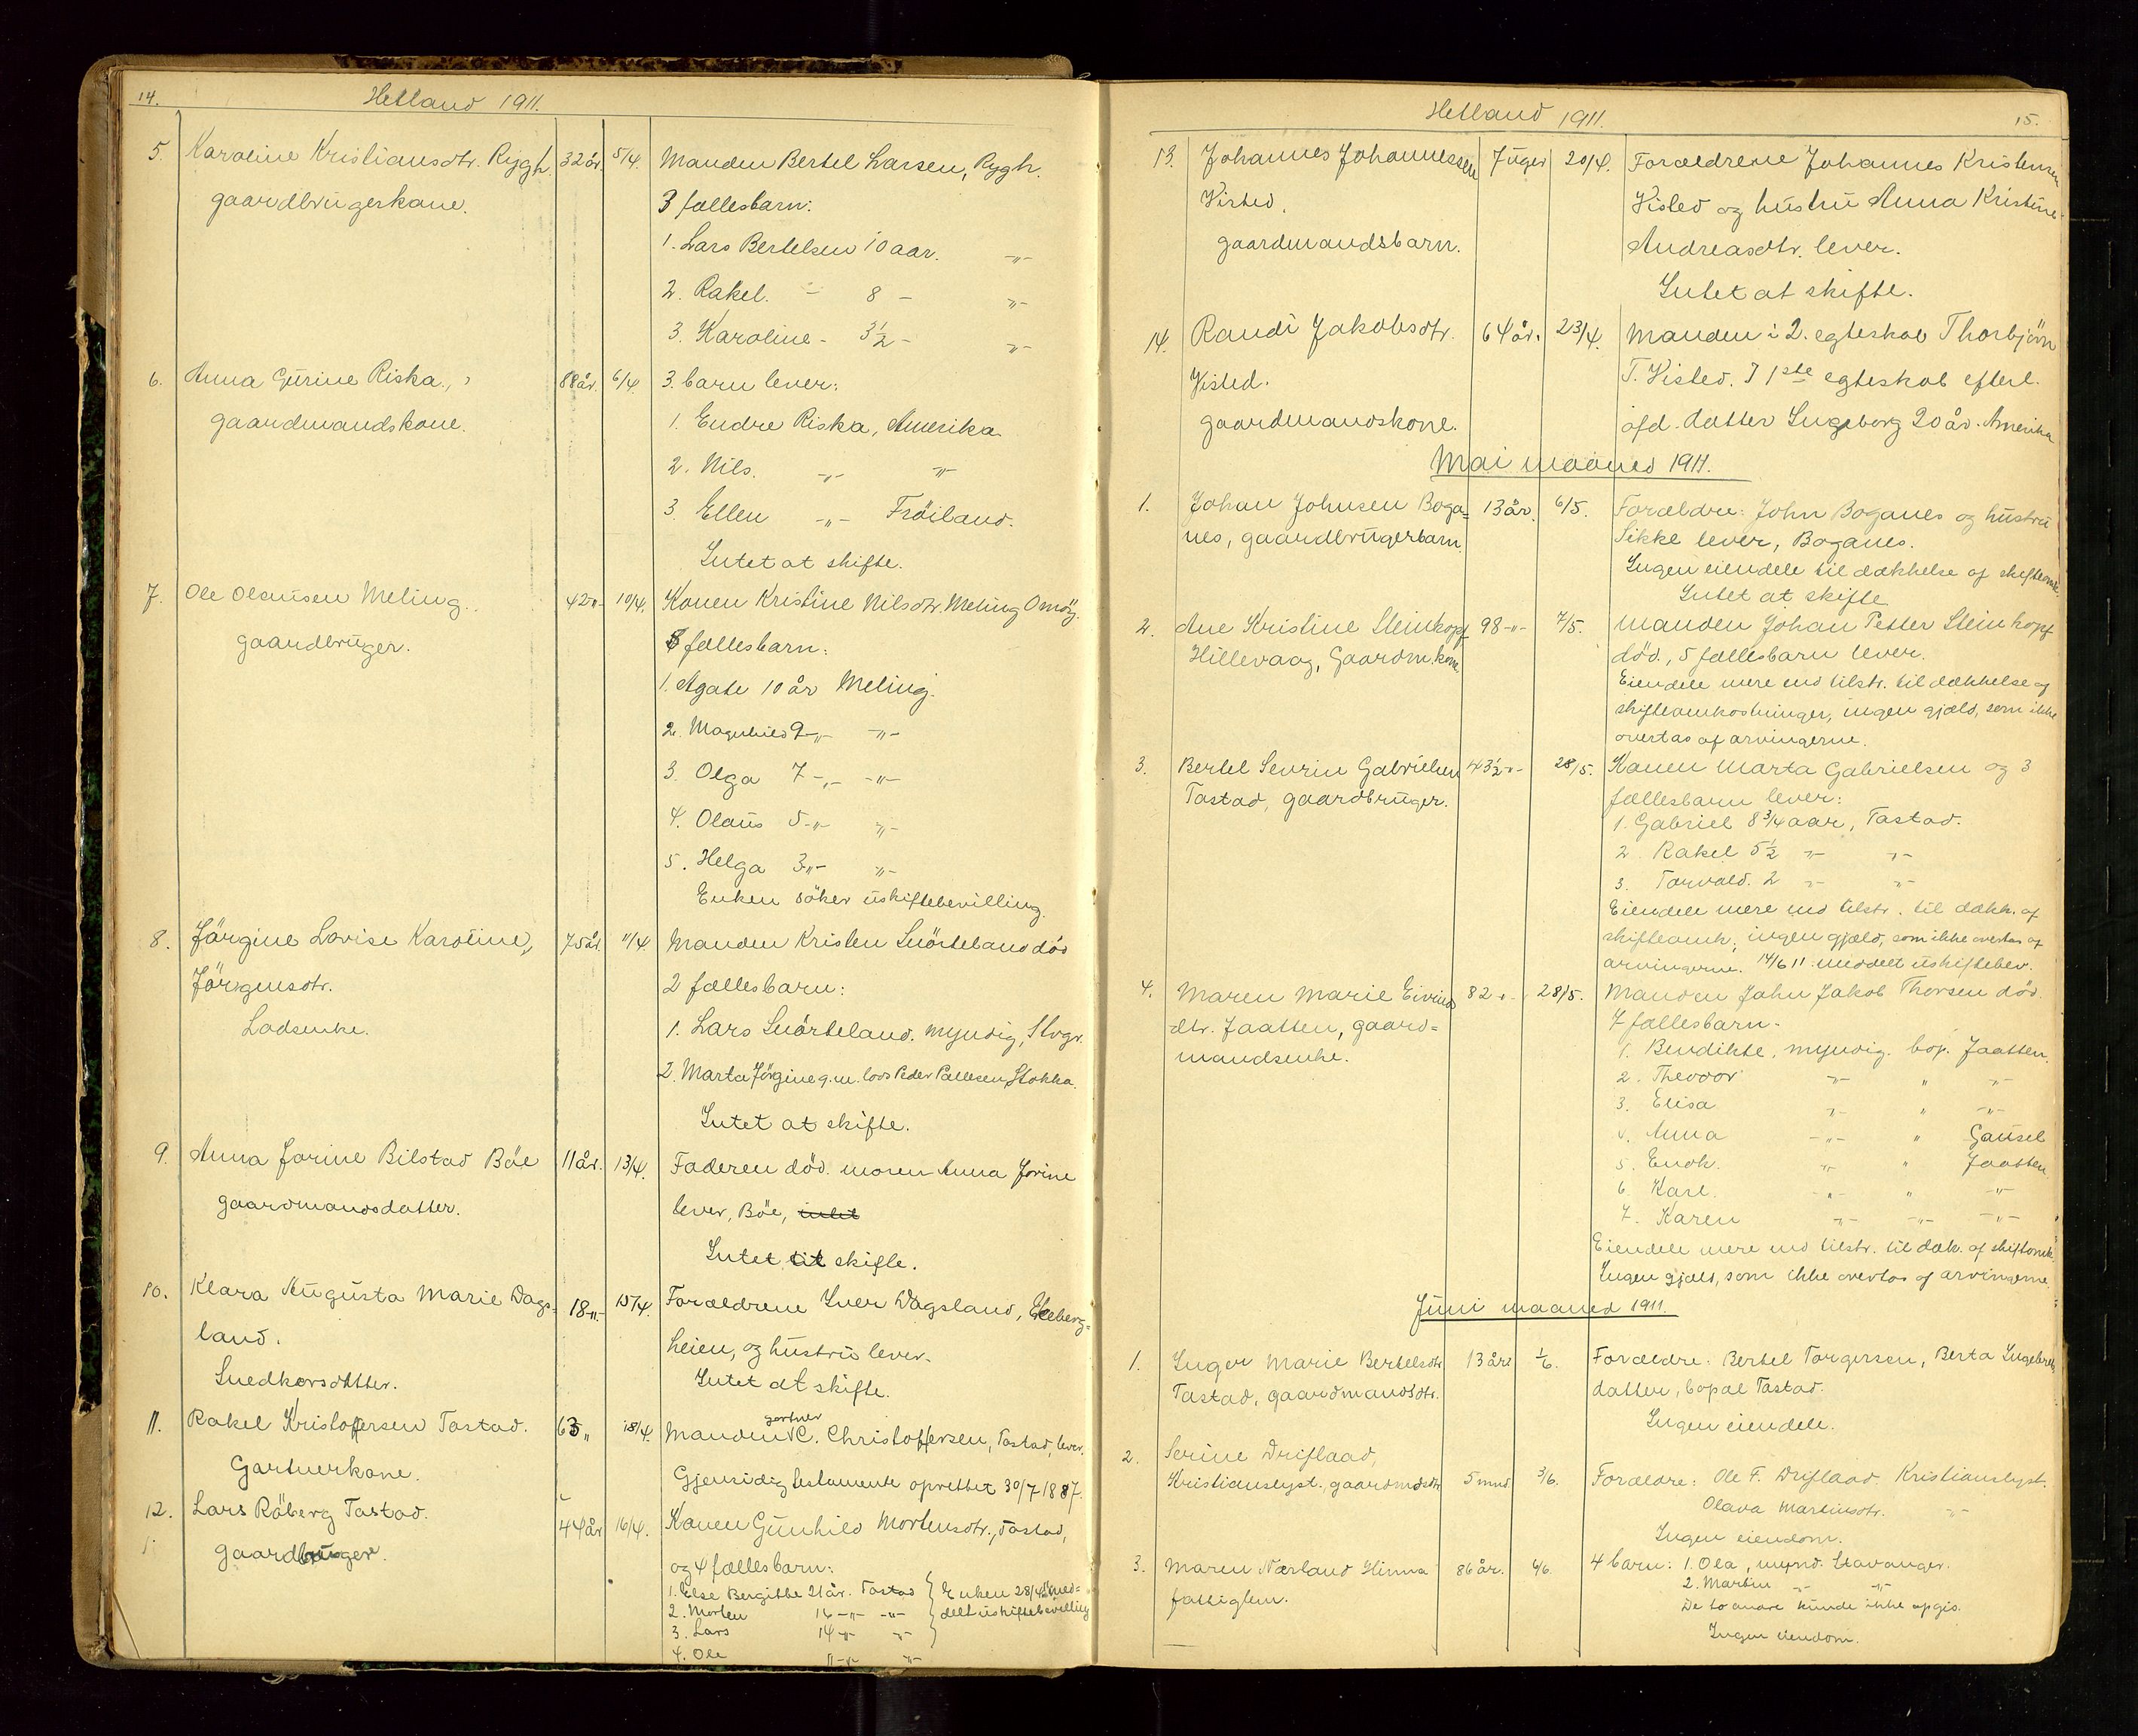 14.
Hetland 1911.
5. Karoline Kristiansdtr. Rygh. 32 år. 5/4. Manden Bertel Larsen, Rygh.
gaardbrugerkone. 3 fællesbarn:
1. Lars Bertelsen 10 aar. -"-
2. Rakel. - 8 - -"-
3. Karoline - 3½ - -"-
6. Anna Gurine Riska., 88 år. 6/4 3. barn lever:
gaardmandskone. 1. Endre Riska, Amerika
2. Nils. -"- -"-
3. Ellen -"- Fröiland.
Intet at skifte.
7. Ole Olausen Meling. 42 -"- 10/4. Konen Kristine Nilsdtr. Meling
gaardbruger. fællesbarn:
1. Agate 10 år Meling.
2. Magnhild 9 -"- -"-
3. Olga 7 -"- -"-
4. Olaus 5 -"- -"-
5. Helga 3 -"- -"-
Enken söker uskiftebevilling.
8. Jörgine Lovise Karoline, 75 år. 11/4 Manden Kristen Snörteland död
Jörgensdtr. 2 fællesbarn:
Lodsenke. 1. Lars Snörteland. myndig, Stvgr.
2. Marta Jörgine g.m. lods Peder Pallesen Stokka.
Intet at skifte.
9. Anna Jorine Bilstad Böe 11 år. 13/4. Faderen död. moren Anna Jorine
gaardmandsdatter. lever, Böe, intet
Intet til skifte.
10. Klara Augusta Marie Dags= 18 -"- 15/4. Forældrene Iver Dagsland, Ekeberg=
land. heien, og hustru lever.
Snedkersdatter. Intet at skifte.
11. Rakel Kristoffersen Tastad. 63 " 18/4. Manden gartner C. Christoffersen, Tastad, lever.
Gartnerkone. Gjensidig testamente oprettet 30/7 1887.
12. Lars Råberg Tastad. 44 år 16/4. Konen Gunhild Mortensdtr., Tastad,
gaardbruger. og 4 fællesbarn:
1. Else Bergitte 21 år. Tastad } Enken 28/4 med=
2. Morten 16 -"- -"- delt uskiftebevilling
3. Lars 14 -"- -"-
4. Ole 11 -"- -"-
Hetland 1911.
15.
13. Johannes Johannessen 7 uger 20/4. Forældrene Johannes Kristensen
Visted. Visted og hustru Anna Kristine
gaardmandsbarn. Andreasdtr. lever.
Intet at skifte.
14. Randi Jakobsdtr. 64 år. 23/4. Manden i 2. egteskab Thorbjörn
Visted. T. Visted. I 1ste egteskab efterl.
gaardmandskone. afd. datter Ingeborg 20 år. Amerika
Mai maaned 1911.
1. Johan Johnsen Boga= 13 år. 6/5. Forældre: John Boganes og hustru
nes, gaardbrugerbarn. Sikke lever, Boganes.
Ingen eiendele til dækkelse af skifteomk.
Intet at skifte
2. Ane Kristine Steinkopf 98 -"- 7/5. Manden Johan Petter Steinkopf
Hillevaag, Gaardm.kone. död, 5 fællesbarn lever.
Eiendele mere end tilstr. til dækkelse af
skifteomkostninger, ingen gjæld, som ikke
overtas af arvingerne.
3. Bertel Sevrin Gabrielsen 43½ -"- 28/5. Konen Marta Gabrielsen og 3
Tastad, gaardbruger. fællesbarn lever:
1. Gabriel 8 3/4 aar, Tastad.
2. Rakel 5½ -"- -"-
3. Torvald. 2 -"- -"-
Eiendele mere end tilstr. til dækk. af
skifteomk., ingen gjæld, som ikke overtas af
arvingerne. 14/6 11. meddelt uskiftebev.
4. Maren Marie Eivinds 82 -"- 28/5. Manden John Jakob Thorsen död.
dtr. Jaatten, gaard= 7 fællesbarn.
mandsenke. 1. Bendikte, myndig. bop. Jaatten.
2. Theodor -"- " -"-
3. Elisa -"- " -"-
4. Anna -"- " Gausel
5. Enok. -"- " Jaatten
6. Karl. -"- " -"-
7. Karen -"- -"- -"-
Eiendele mere end tilstr. til dæk. af skifteomk.
Ingen gjæld, som ikke overtas af arvingerne.
Juni maaned 1911.
1. Inger Marie Bertelsdtr 13 år. 1/6. Forældre: Bertel Torgersen, Berta Ingebrets
Tastad, gaardmandsdtr. datter, bopæl Tastad.
Ingen eiendele.
2. Serine Driflaad,
Kristianslyst., gaardmdsdtr 5 mnd. 3/6. Forældre: Ole F. Driflaad. Kristianslyst.
Olava Martinsdtr. -"-
Ingen eiendom.
3. Maren Nærland Hinna 86 år. 4/6. 4 barn: 1. Ola, mynd. Stavanger.
fattiglem. 2. Martin -"- -"-
De to andre kunde ikke opgis.
Ingen eiendom.